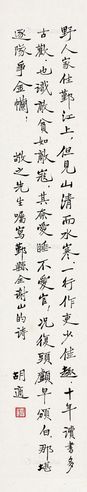 野人家住鄞江上，但見山清而水寒。一行作吏少佳趣，十年讀書多
古歡。也識敵貧如敵寇，其奈愛睡不愛官。況復頭顱早頒白，那堪
逐隊爭金襴！　　敬之先生囑寫鄞縣全謝山的詩　胡適